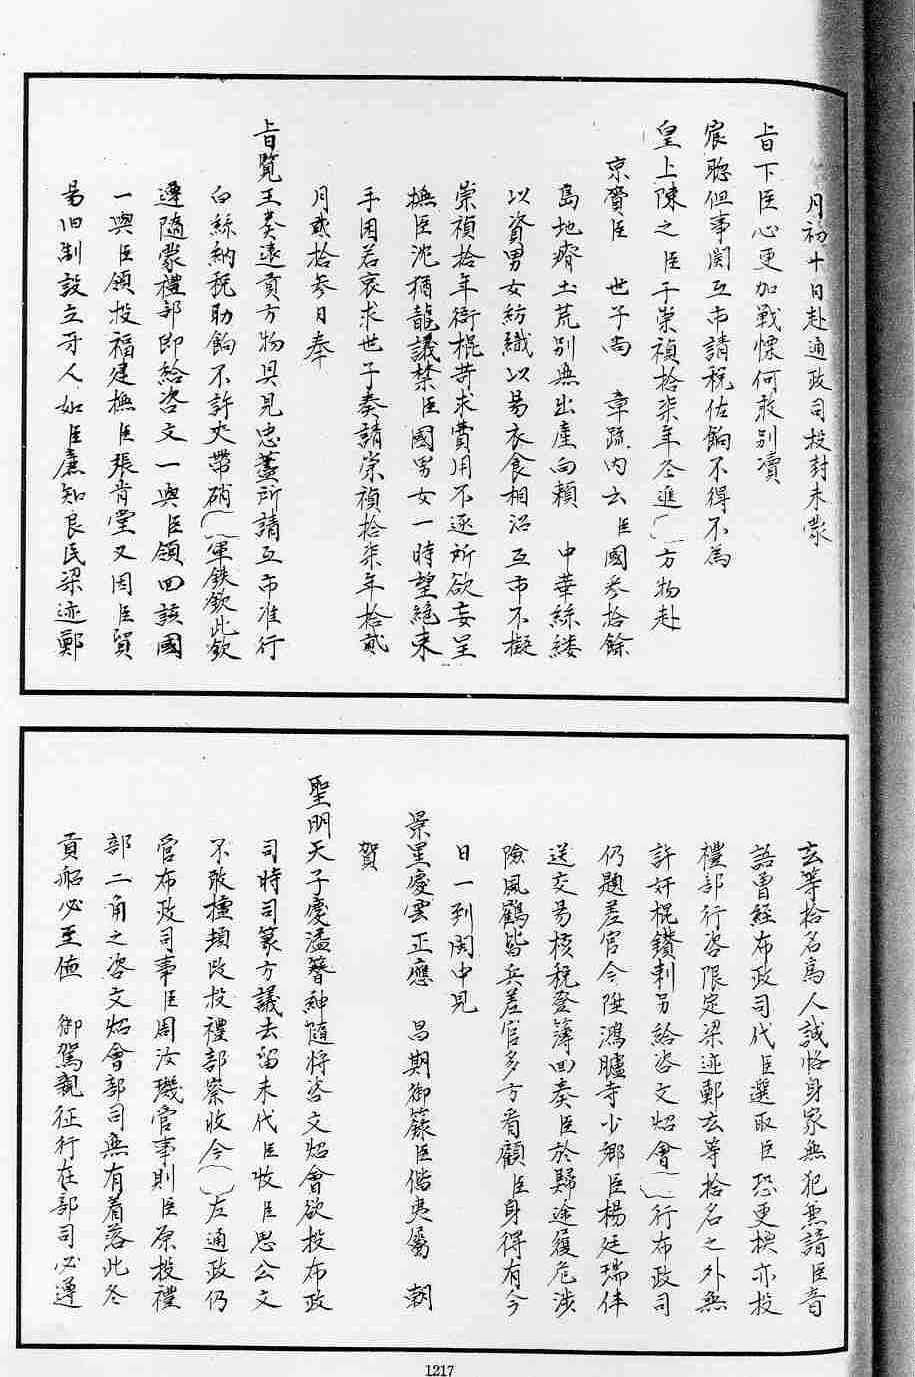 月初十日赴通政司投封未蒙
旨下臣心更加戰慄何敢別瀆
宸聰但事関互市請稅佐餉不得不為
皇上陳之臣于崇禎拾柒年冬進〔〕方物赴
京賫臣 世子尚 章疏內云臣國叁拾餘
島地瘠土荒別無出產向賴 中華絲縷
以資男女紡織以易衣食相沿互市不擬
崇禎拾年衙棍苛求費用不逐所欲妄呈
撫臣沈猶龍議禁臣國男女一時望絕束
手因若哀求世子奏請崇禎拾柒年拾貳
月貳拾叁日奉
旨覽王奏遠貢方物具見忠藎所請互市准行
白絲納稅助餉不許夾帶硝〔〕軍鉄欽此欽
遵隨蒙禮部即給咨文一與臣領回該國
一與臣領投福建撫臣張肯堂又因臣貿
易旧制設立牙人如臣庶知良民梁迹鄭
玄等拾名為人誠恪身家無犯兼諳臣音
語曾經布政司代臣選取臣恐更換亦投
禮部行咨限定梁迹鄭玄等拾名之外無
許奸棍鑽刺另給咨文炤會〔〕行布政司
仍題差官今陞鴻臚寺少鄉臣楊廷瑞伴
送交易核稅登簿回奏臣於歸途履危涉
險風鶴皆兵差官多方看顧臣身得有今
日一到閩中見
景星慶雲正應 昌期御籙臣偕夷屬 朝
賀
聖明天子慶溢簪紳隨將咨文炤會欲投布政
司時司篆方議去留未代臣收臣思公文
不敢擅頓改投禮部察收今〔〕左通政仍
官布政司事臣周汝璣官事則臣原投禮
部二角之咨文炤會部司無有着落此冬
貢船必至值 御駕親征行在部司必遵
1217